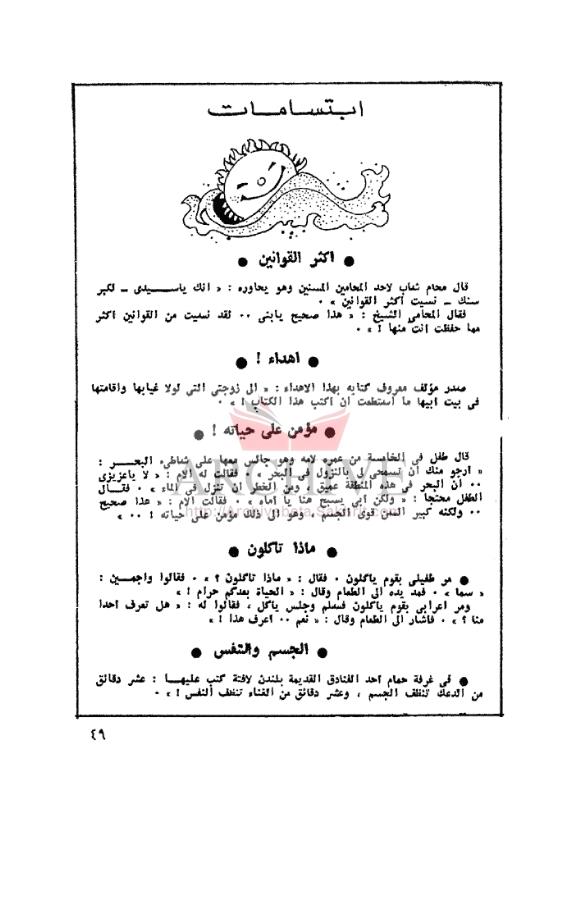 ابتسامات
● اكثر القوانين ●
قال محام شاب لاحد المحامين المسنين وهو يحاوره : « انك ياسيدى ـ لكبر
سنك ـ نسيت اكثر القوانين » ٠
فقال المحامى الشيخ : « هذا صحيح يابنى ٠٠ لقد نسيت من القوانين اكثر
مما حفظت انت منها ! » ٠
● اهداء ! ●
صدر مؤلف معروف كتابه بهذا الاهداء : « الى زوجتى التى لولا غيابها واقامتها
فى بيت ابيها ما استطعت ان اكتب هذا الكتاب ! » ٠
● مؤمن على حياته ! ●
قال طفل فى الخامسة من عمره لامه وهو جالس معها على شاطىء البحر :
« ارجو منك ان تسمحى لى بالنزول فى البحر » ٠ فقالت له الام : « لا ياعزيزى
٠٠ ان البحر فى هذه المنطقة عميق ، ومن الخطر ان تنزل فى الماء » ٠ فقال
الطفل محتجا : « ولكن ابى يسبح هنا يا اماه » ٠ فقالت الام : « هذا صحيح
٠٠ ولكنه كبير السن قوى الجسم ، وهو الى ذلك مؤمن على حياته ! ٠٠ »
ARCHIVE
http://Archivebeta.Sakhrit.com
● ماذا تاكلون ●
● مر طفيلى بقوم ياكلون ٠ فقال : « ماذا تاكلون ؟ » ٠ فقالوا واجمين :
« سما » ٠ فمد يده الى الطعام وقال : « الحياة بعدكم حرام ! »
ومر اعرابى بقوم ياكلون فسلم وجلس ياكل ، فقالوا له : « هل تعرف احدا
منا ؟ » ٠ فاشار الى الطعام وقال : « نعم ٠٠ اعرف هذا ! »
● الجسم والنفس ●
● فى غرفة حمام احد الفنادق القديمة بلندن لافتة كتب عليها : عشر دقائق
من الدعك تنظف الجسم ، وعشر دقائق من الغناء تنظف النفس ! » ٠
٤٩